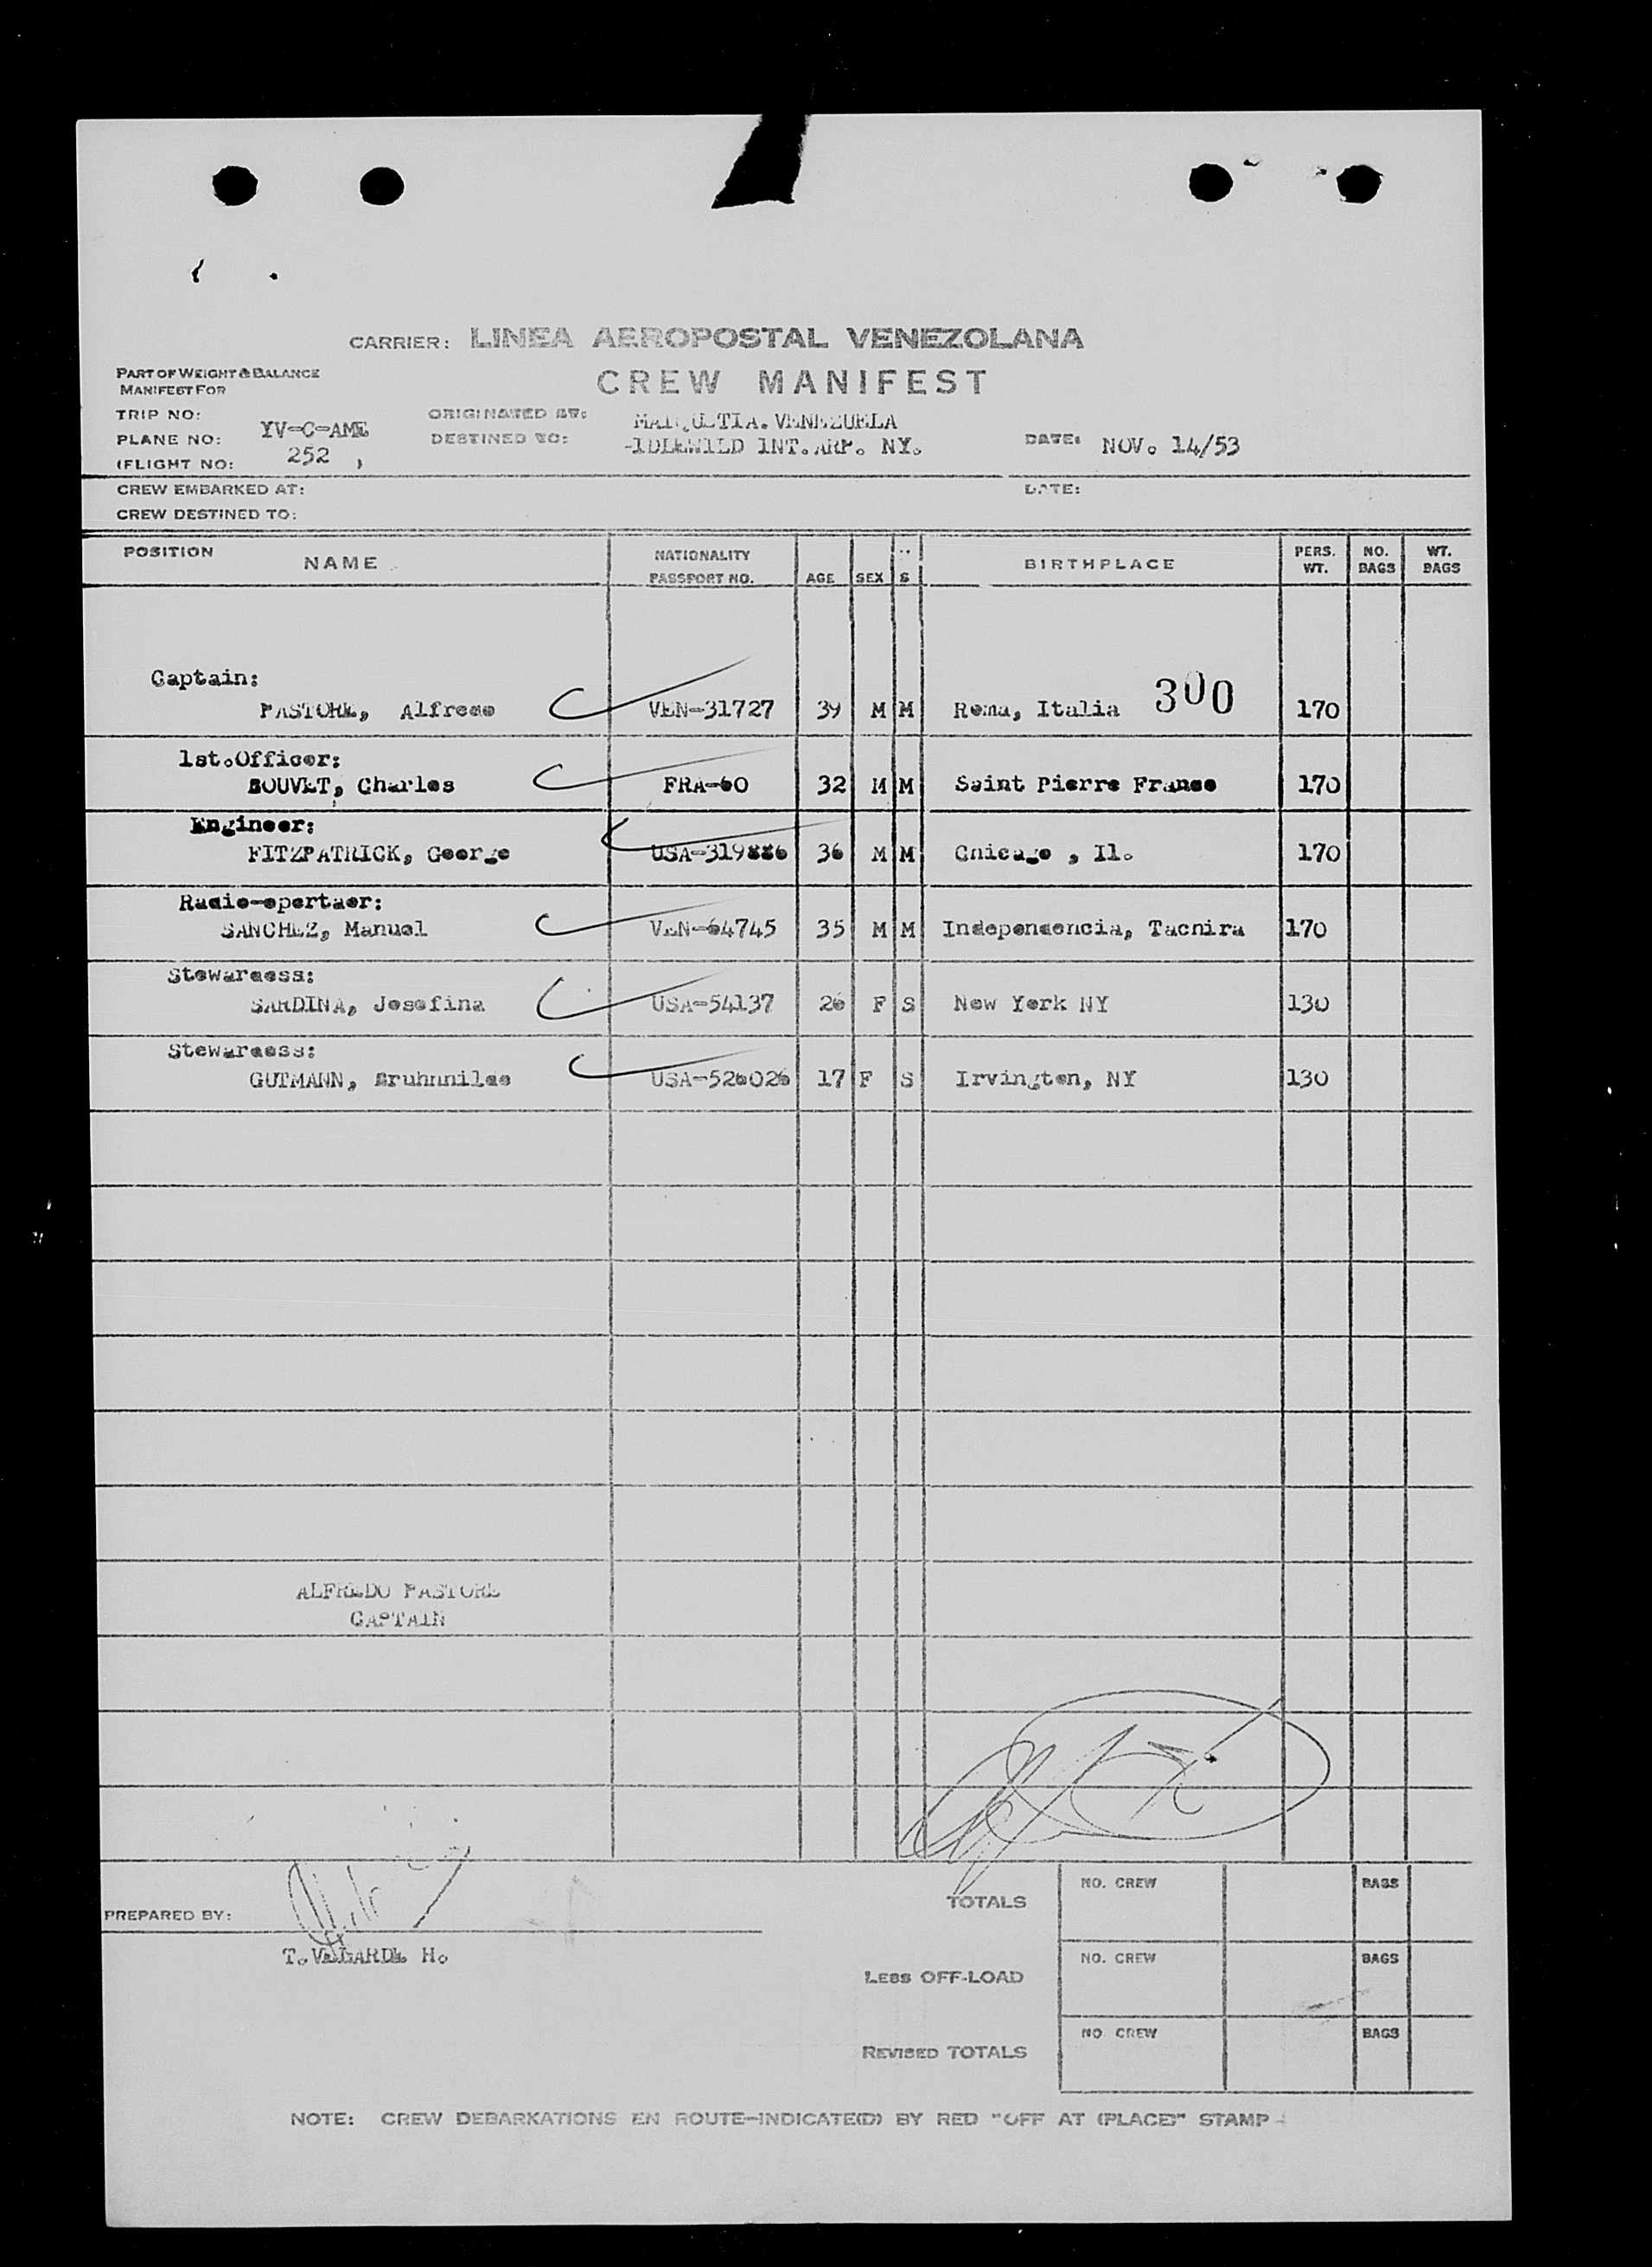 CARRIER: LINEA AEROPOSTAL VENEZOLANA
PART OF WEIGHT & BALANCE
MANIFEST FOR
CREW MANIFEST
TRIP NO:
PLANE NO: YV-C-AME
(FLIGHT NO: 252 )
ORIGINATED AT: MAIQUETIA. VENEZUELA
DESTINED TO: -IDLEWILD INT. ARP. NY.
DATE: NOV. 14/53
CREW EMBARKED AT: DATE:
CREW DESTINED TO:
POSITION NAME NATIONALITY PASSPORT NO. AGE SEX S BIRTHPLACE PERS. WT. NO. BAGS WT. BAGS
Captain:
PASTORE, Alfredo VEN-31727 39 M M Roma, Italia 300 170
1st.Officer:
BOUVET, Charles FRA-60 32 M M Saint Pierre France 170
Engineer:
FITZPATRICK, George USA-319886 36 M M Chicago , Il. 170
Radio-opertaor:
SANCHEZ, Manuel VEN-64745 35 M M Independencia, Tachira 170
Stewardess:
SARDINA, Josefina USA-54137 26 F S New York NY 130
Stewardess:
GUTMANN, USA-526026 17 F S Irvington, NY 130
ALFREDO PASTORE
CAPTAIN
PREPARED BY:
T. H.
TOTALS NO. CREW BAGS
LESS OFF-LOAD NO. CREW BAGS
REVISED TOTALS NO. CREW BAGS
NOTE: CREW DEBARKATIONS EN ROUTE-INDICATE(D) BY RED "OFF AT (PLACE)" STAMP